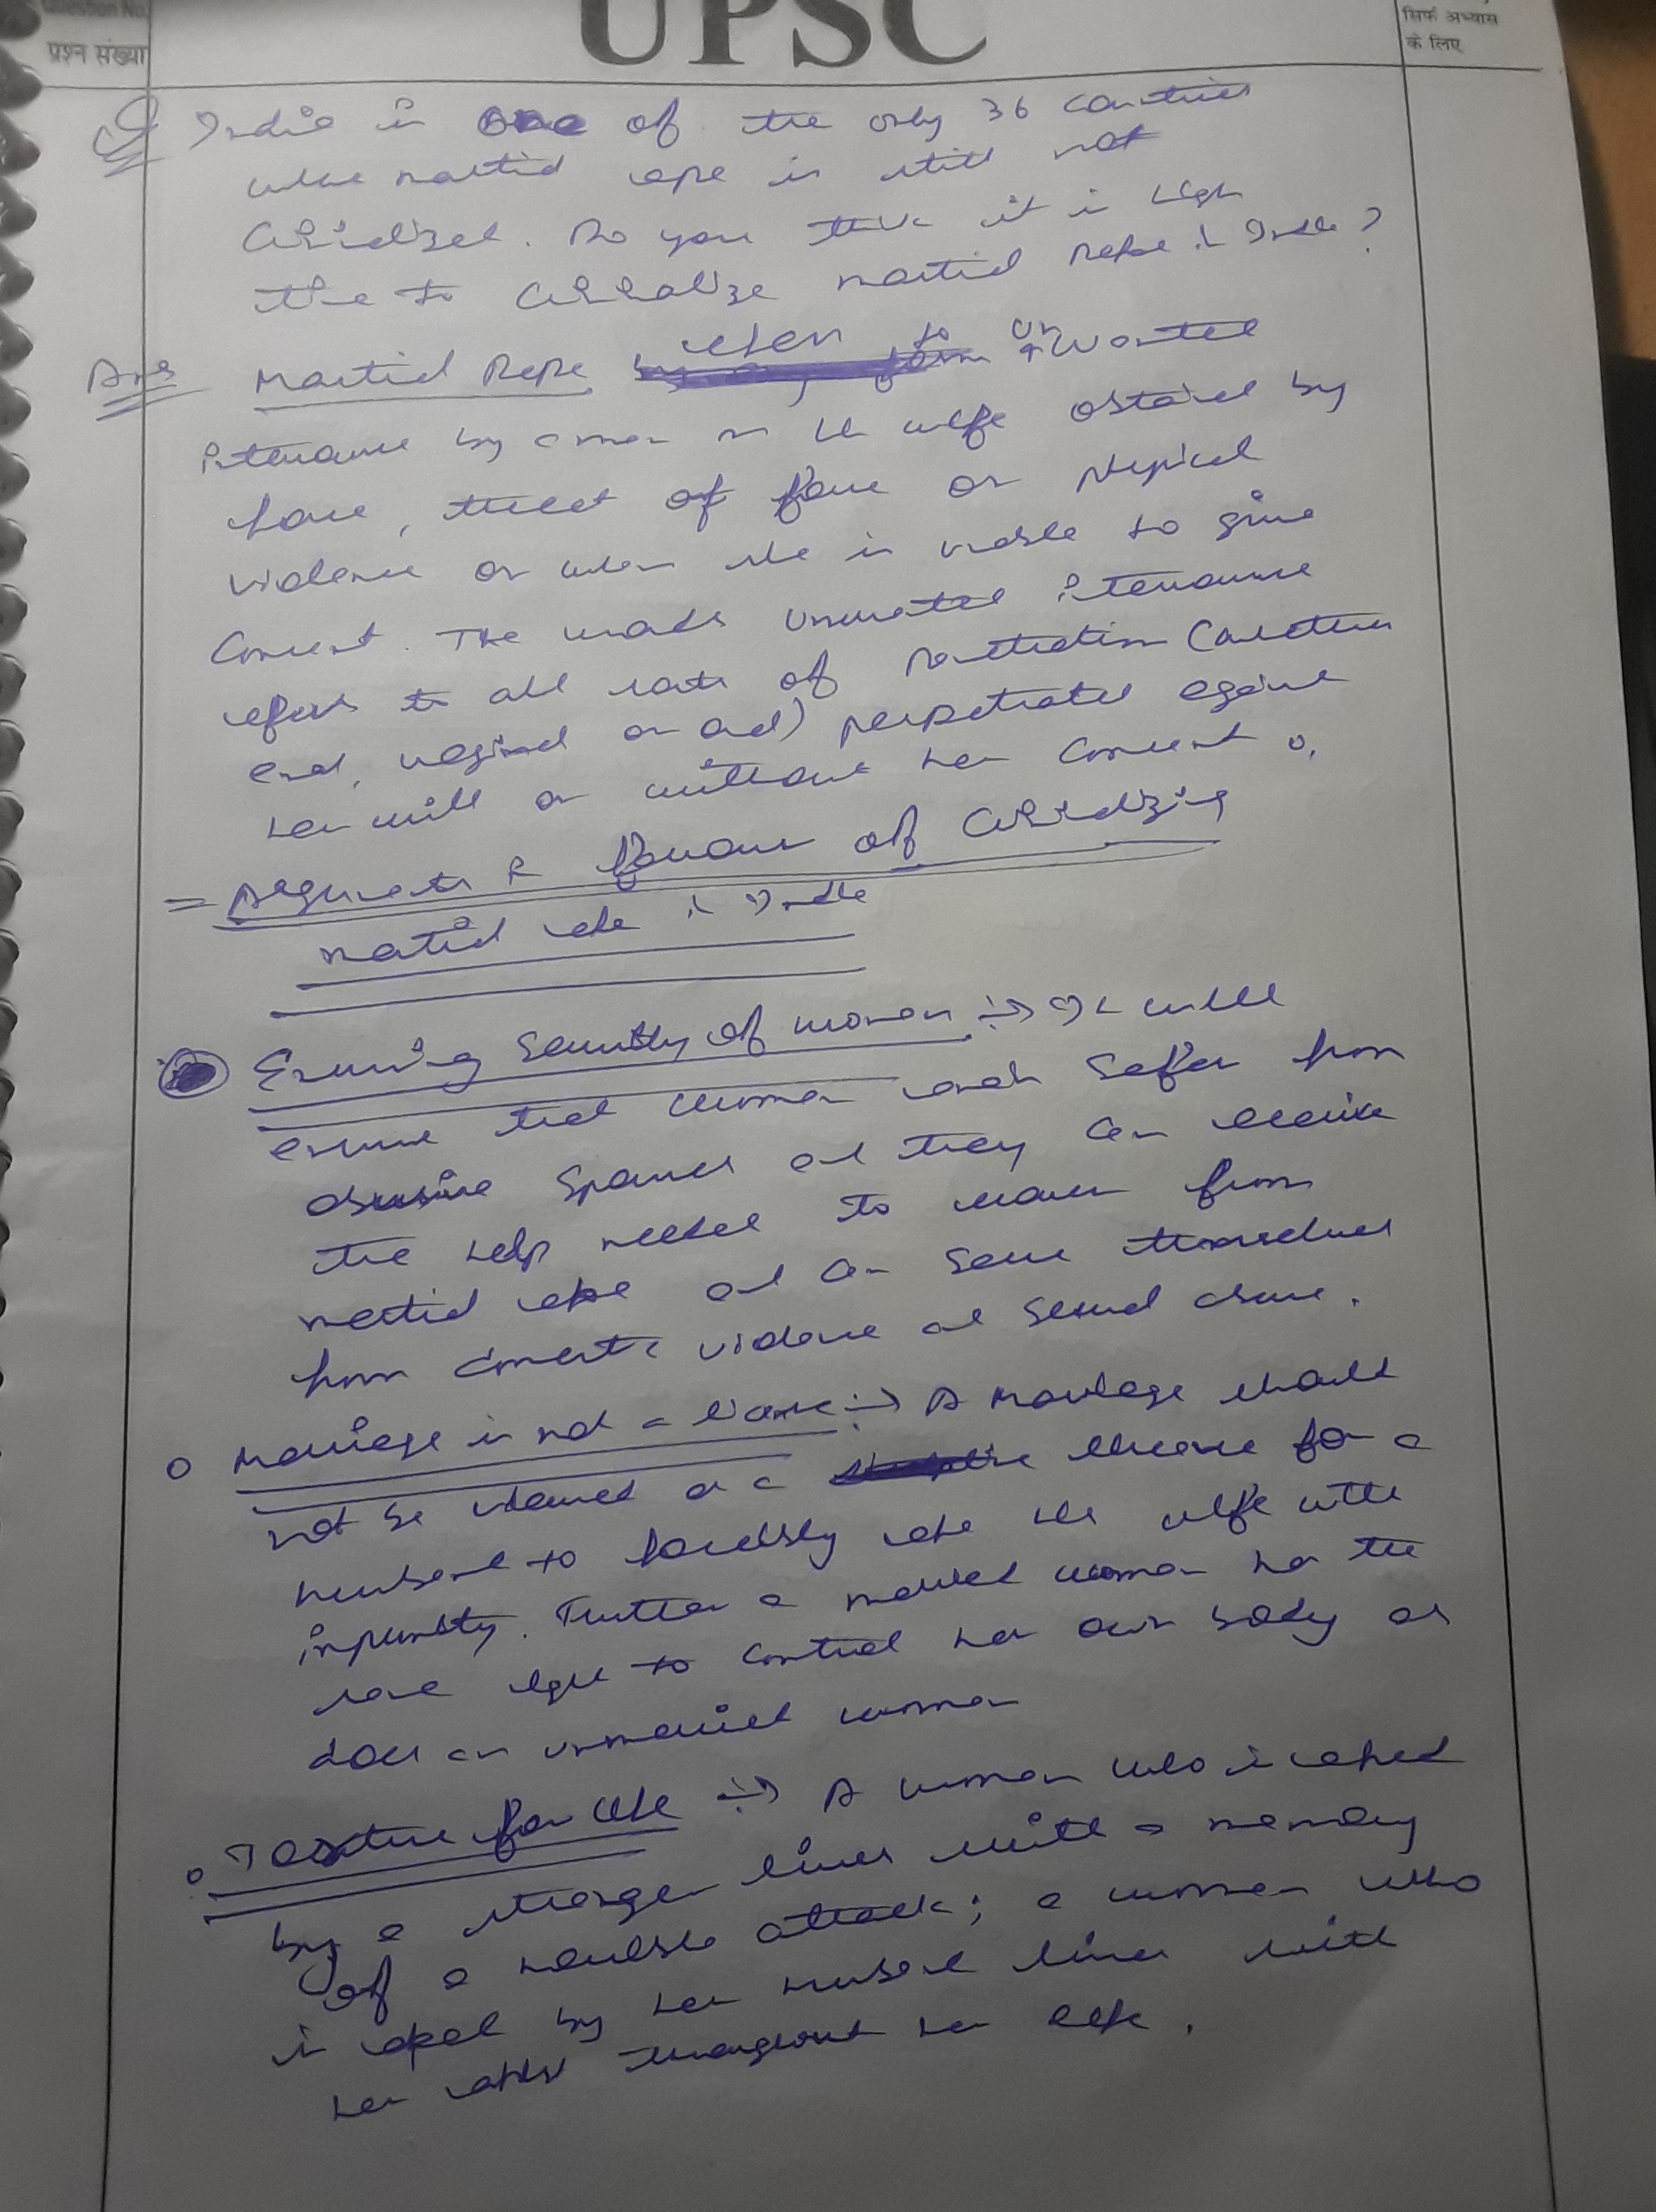 Question No.
प्रश्न संख्या
UPSC
सिर्फ अभ्यास
के लिए
Q India is one of the only 36 countries
where marital rape is still not
criminalized. Do you think it is high
time to criminalize marital rape in India?
Ans Marital Rape refers to unwanted
intercourse by a man on his wife obtained by
force, threat of force or physical
violence or when she is unable to give
consent. The words unwanted intercourse
refers to all sorts of penetration (whether
anal, vaginal or oral) perpetrated against
her will or without her consent.
= Arguments in favour of criminalizing
marital rape in India
Ensuring Security of women => It will
ensure that women safer from
abusive spouses and they can receive
the help needed to recover from
marital rape and can save themselves
from domestic violence and sexual abuse.
o Marriage is not a licence => A marriage should
not be viewed as a license for a
husband to forcibly rape his wife with
impunity. Further a married woman has the
same right to control her own body as
does an unmarried woman
o Torture for life => A woman who is raped
by a stranger lives with a memory
of a horrible attack; a woman who
is raped by her husband lives with
her rapist throughout her life.